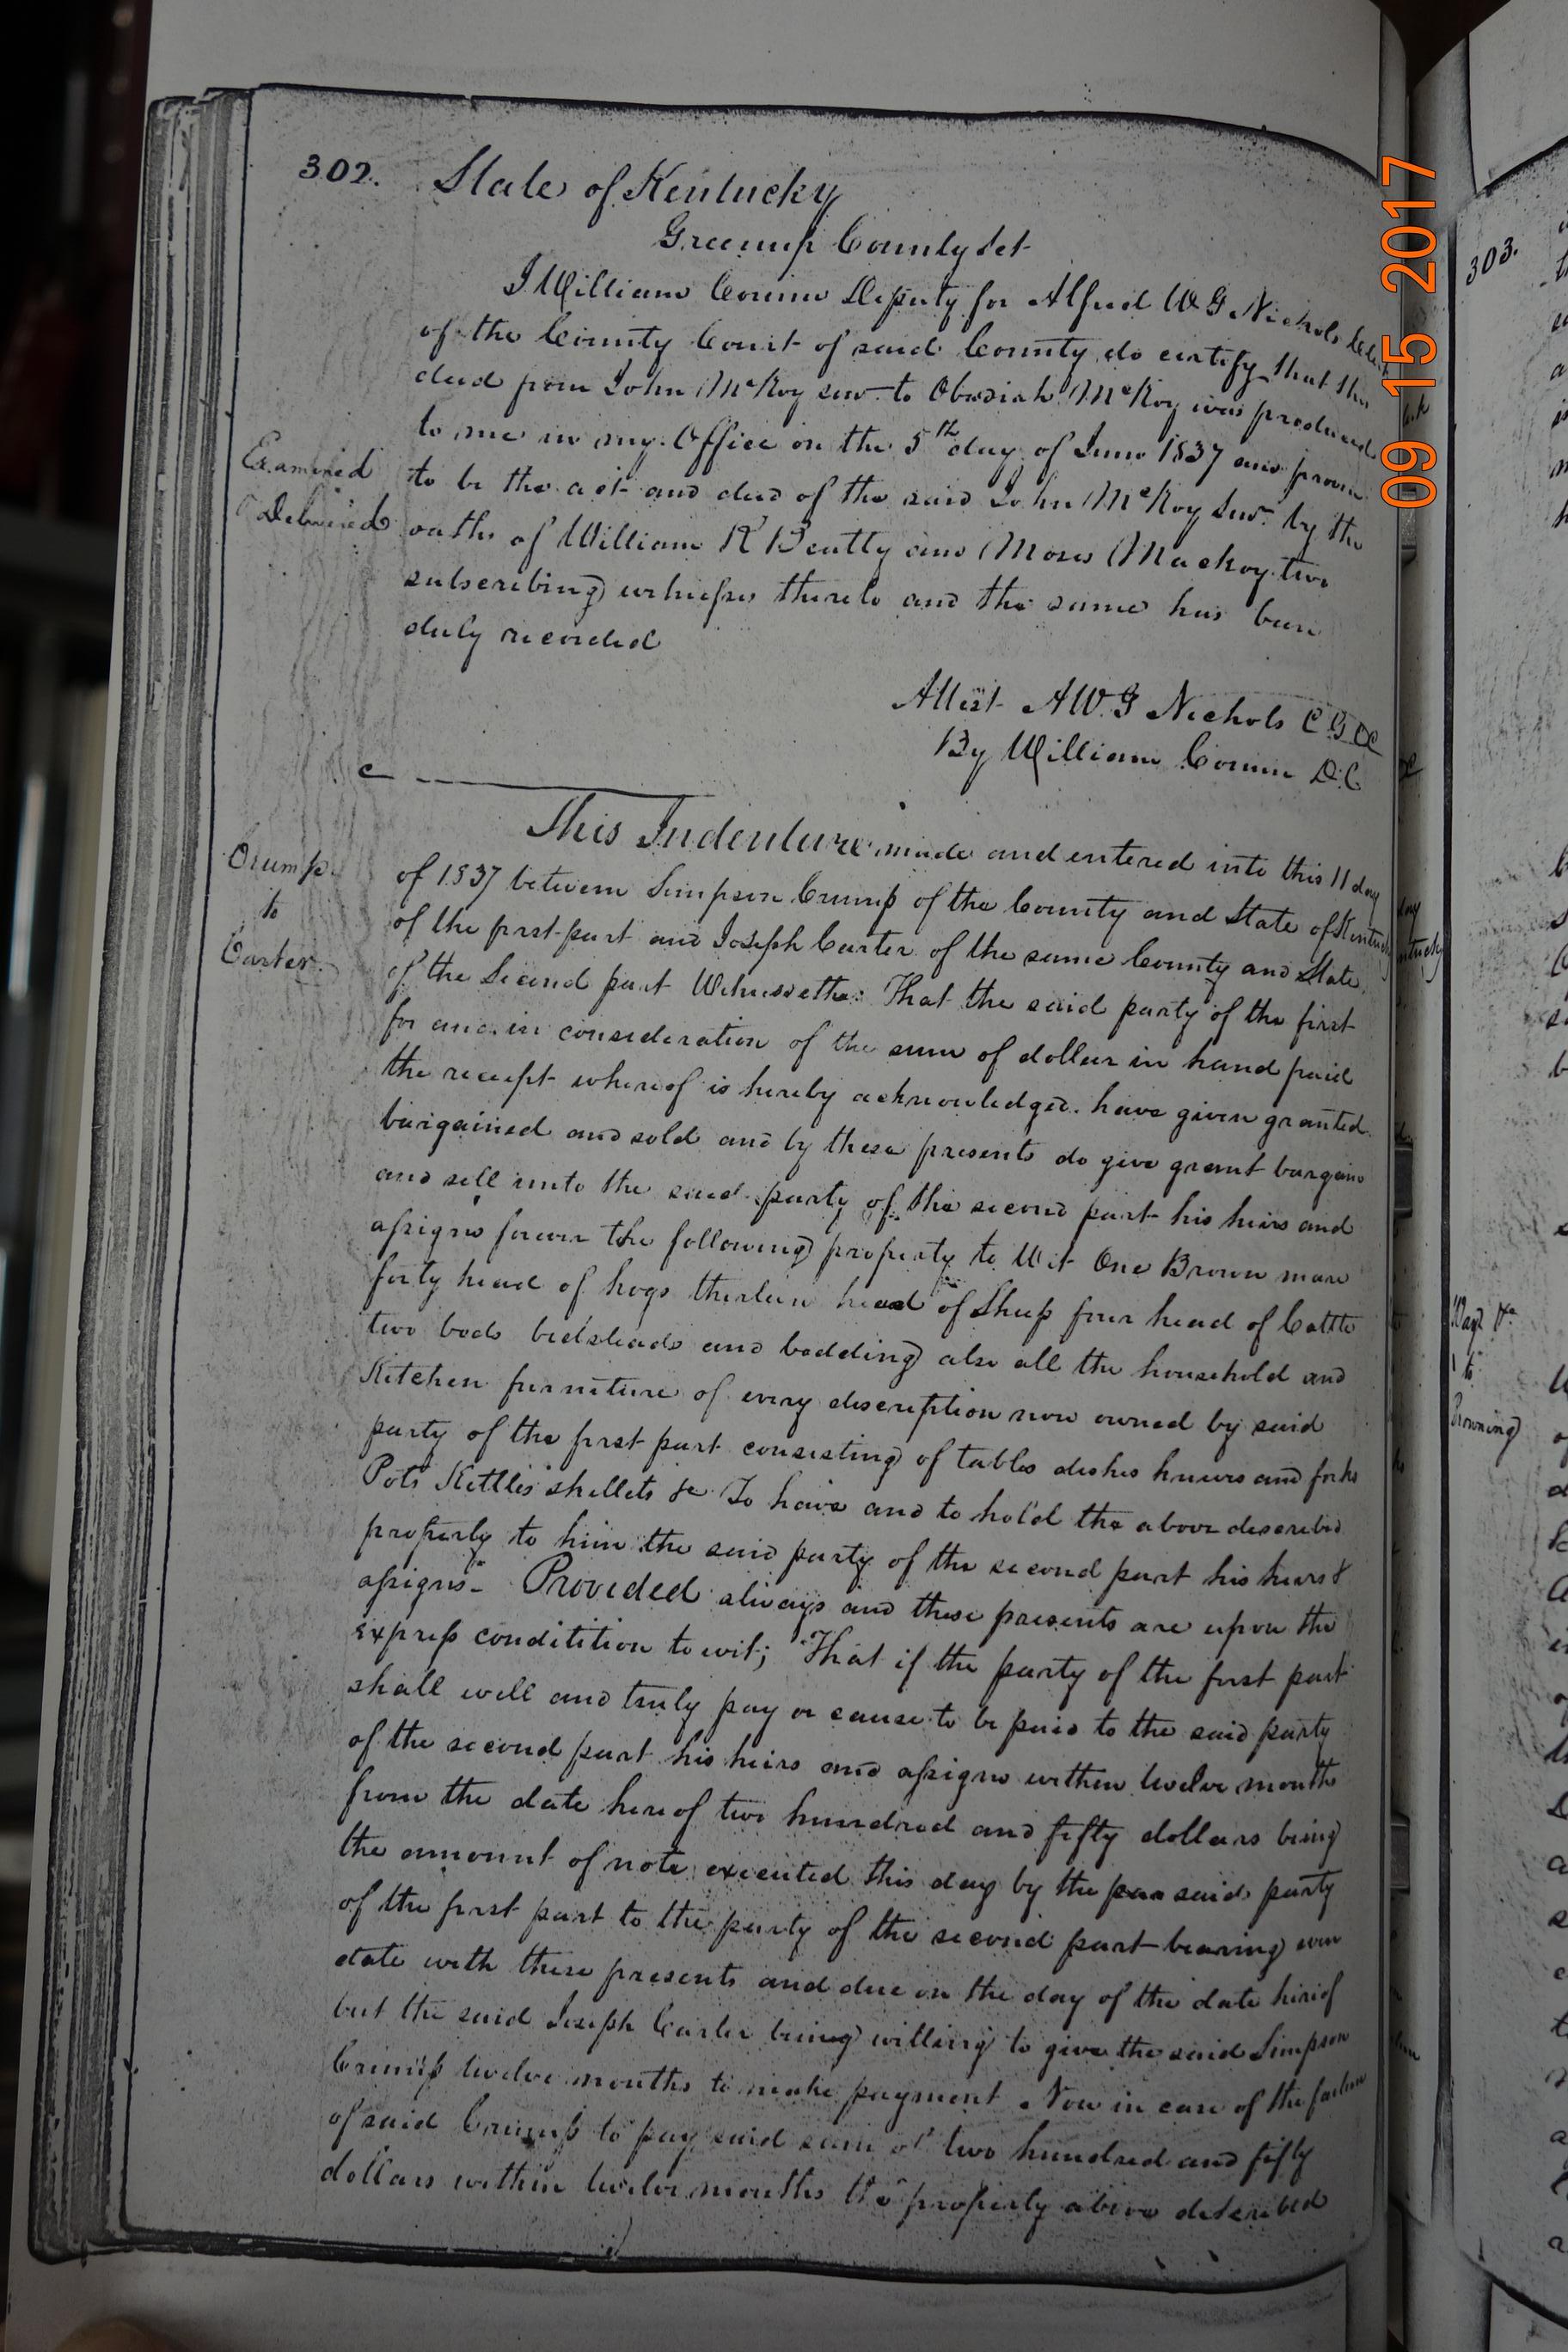 302. State of Kentucky
Greenup County Sct
I William Corum Deputy for Alfred W G Nichols Clerk
of the County Court of said County do certify that this
deed from John McKoy senr to Obadiah McKoy was produced
to me in my Office on the 5th day of June 1837 and proven
to be the act and deed of the said John McKoy Senr by the
oaths of William R Beatty and Moses Mackoy two
subscribing witnesses thereto and the same has been
duly recorded
Examined
Delivered
Attest A W. G Nichols C G C C
By William Corum D.C.
Crump
to
Carter
This Indenture made and entered into this 11 day
of 1837 between Simpson Crump of the County and State of Kentucky
of the first part and Joseph Carter of the same County and State
of the Second part Witnesseth: That the said party of the first
for and in consideration of the sum of dollar in hand paid
the receipt whereof is hereby acknowledged. have given granted
bargained and sold and by these presents do give grant bargain
and sell unto the said party of the second part his heirs and
assigns forever the following property to Wit One Brown mare
forty head of hogs thirteen head of Sheep four head of Cattle
two beds bedsteads and bedding also all the household and
Kitchen furniture of every description now owned by said
party of the first part consisting of tables dishes knives and forks
Pots Kettles skellets &c To have and to hold the above described
property to him the said party of the second part his heirs &
assigns- Provided always and these presents are upon the
express conditition to wit; That if the party of the first part
shall well and truly pay or cause to be paid to the said party
of the second part his heirs and assigns within twelve months
from the date hereof two hundred and fifty dollars being
the amount of note executed this day by the said party
of the first part to the party of the second part bearing even
date with these presents and due on the day of the date hereof
but the said Joseph Carter being willing to give the said Simpson
Crump twelve months to make payment Now in case of the failure
of said Crump to pay said sum of two hundred and fifty
dollars within twelve months the property above described
09 15 2017
303.
to
Browning